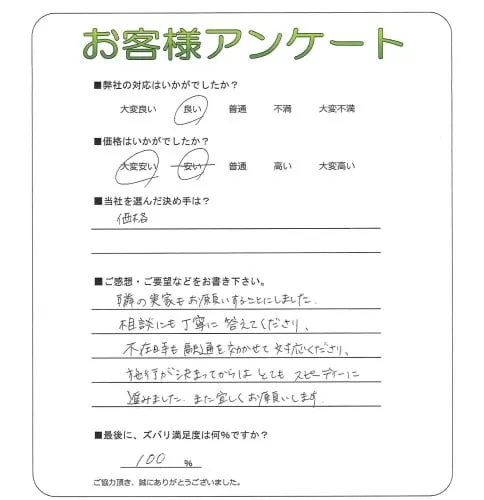 お客様アンケート
■弊社の対応はいかがでしたか？
大変良い 良い 普通 不満 大変不満
■価格はいかがでしたか？
大変安い 安い 普通 高い 大変高い
■当社を選んだ決め手は？
価格
■ご感想・ご要望などをお書き下さい。
隣の実家もお願いすることにしました。
相談にも丁寧に答えてくださり、
不在時も融通を効かせて対応くださり、
施行が決まってからはとてもスピーディーに
進みました。また宜しくお願いします。
■最後に、ズバリ満足度は何％ですか？
100 ％
ご協力頂き、誠にありがとうございました。